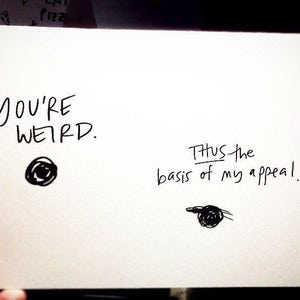 YOU'RE
WEIRD.
THUS the
basis of my appeal.